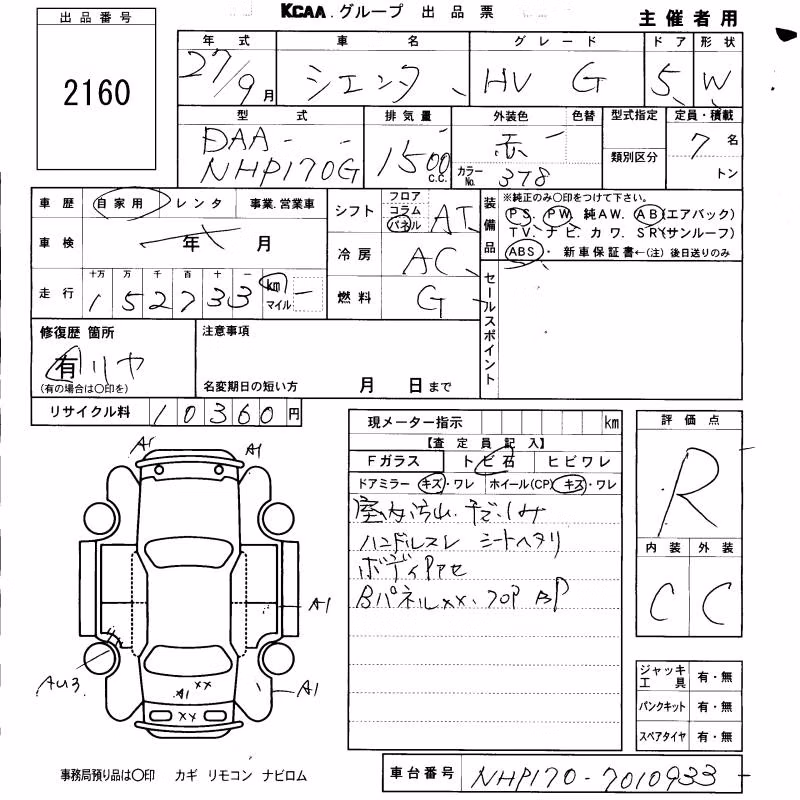 KCAA.グループ 出品票
主催者用
出品番号
2160
年式 車名 グレード ドア 形状
27/9月 シエンタ HV G 5 W
型式 排気量 外装色 色替 型式指定 定員・積載
DAA- - 1500 C.C. 赤 7名
NHP170G カラーNo. 378 類別区分 トン
車歴 自家用 レンタ 事業.営業車
車検 年 月
走行 十万 万 千 百 十 一
152733 km マイル
シフト フロア コラム パネル AT
冷房 AC
燃料 G
装備品
※純正のみ〇印をつけて下さい。
PS. PW. 純AW. AB(エアバック)
TV. ナビ. カワ. SR(サンルーフ)
ABS・新車保証書←(注) 後日送りのみ
セールスポイント
修復歴 箇所
有 リヤ
(有の場合は〇印を)
注意事項
名変期日の短い方 月 日まで
リサイクル料 10360円
現メーター指示 km
【査定員記入】
Fガラス トビ石 ヒビワレ
ドアミラー キズ・ワレ ホイール(CP) キズ・ワレ
ハンドルスレ シートヘタリ
Bパネルxx.フロP BP
評価点
R
内装 外装
C C
A1
A1
A1
AU3
A1 xx
A1
xx
ジャッキ工具 有・無
パンクキット 有・無
スペアタイヤ 有・無
事務局預り品は〇印 カギ リモコン ナビロム
車台番号 NHP170-7010933